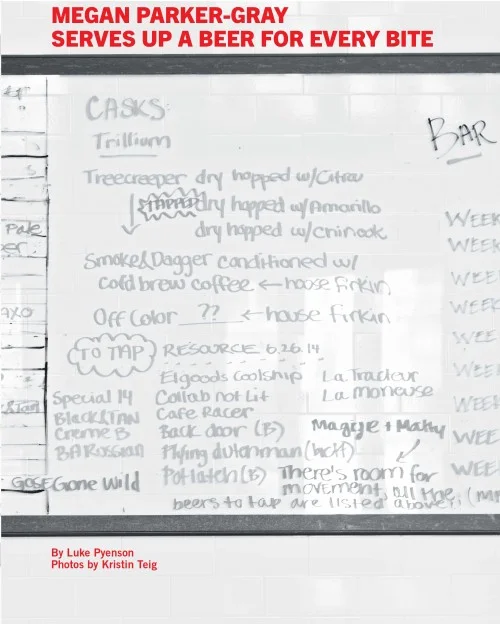 MEGAN PARKER-GRAY
SERVES UP A BEER FOR EVERY BITE
CASKS:
Trillium
BAR
Treecreeper dry hopped w/Citra
dry hopped w/Amarillo
dry hopped w/Chinook
Pale
Smoke&Dagger conditioned w/
cold brew coffee ← house firkin
Off Color ?? ← house firkin
TO TAP RESOURCE 6.26.14
Elgoods Coolship La Tracteur
Special 14 Collab not Lit La Moneuse
Black&TAN Cafe Racer
Creme B Back door (B) Maggie + Matty
BA Russian Flying dutchman
GOSE Gone Wild Potlatch (B) There's room for
movement, all the
beers to tap are listed above,
WEEK
WEEK
WEEK
WEEK
WEE
WEE
WEEK
WEE
WEE
By Luke Pyenson
Photos by Kristin Teig